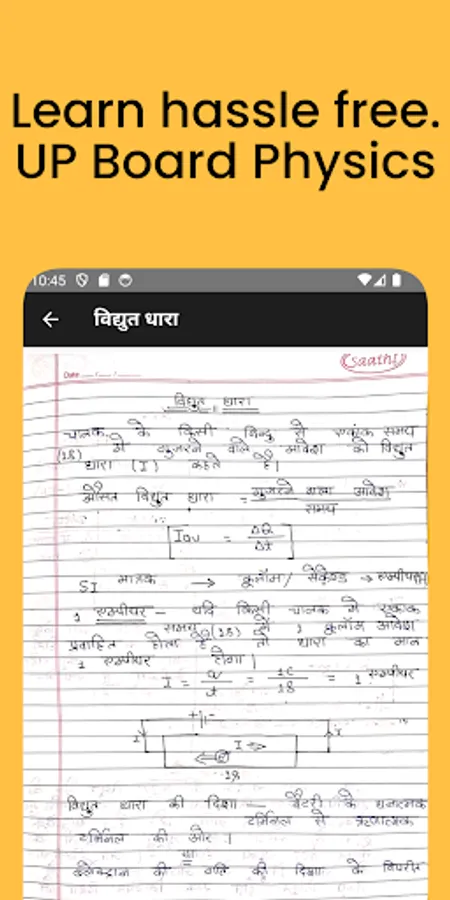 Learn hassle free.
UP Board Physics
10:45
विद्युत धारा
saathi
Date
विद्युत धारा
चालक के किसी बिन्दु से एकांक समय
(1s) में गुजरने वाले आवेश को विद्युत
धारा (I) कहते है।
औसत विद्युत धारा = गुजरने वाला आवेश
समय
[Iav = ΔQ
Δt]
SI मात्रक → कूलॉम/ सेकेण्ड → एम्पीयर
1 एम्पीयर — यदि किसी चालक में एकांक
समय (1s) में 1 कूलॉम आवेश
प्रवाहित होता है तो धारा का मान
1 एम्पीयर होगा।
I = Q/t = 1C/1s = 1 एम्पीयर
+ -
I I
I →
विद्युत धारा की दिशा — बैटरी के धनात्मक
टर्मिनल से ऋणात्मक
टर्मिनल की ओर।
या
इलेक्ट्रान की गति की दिशा के विपरीत